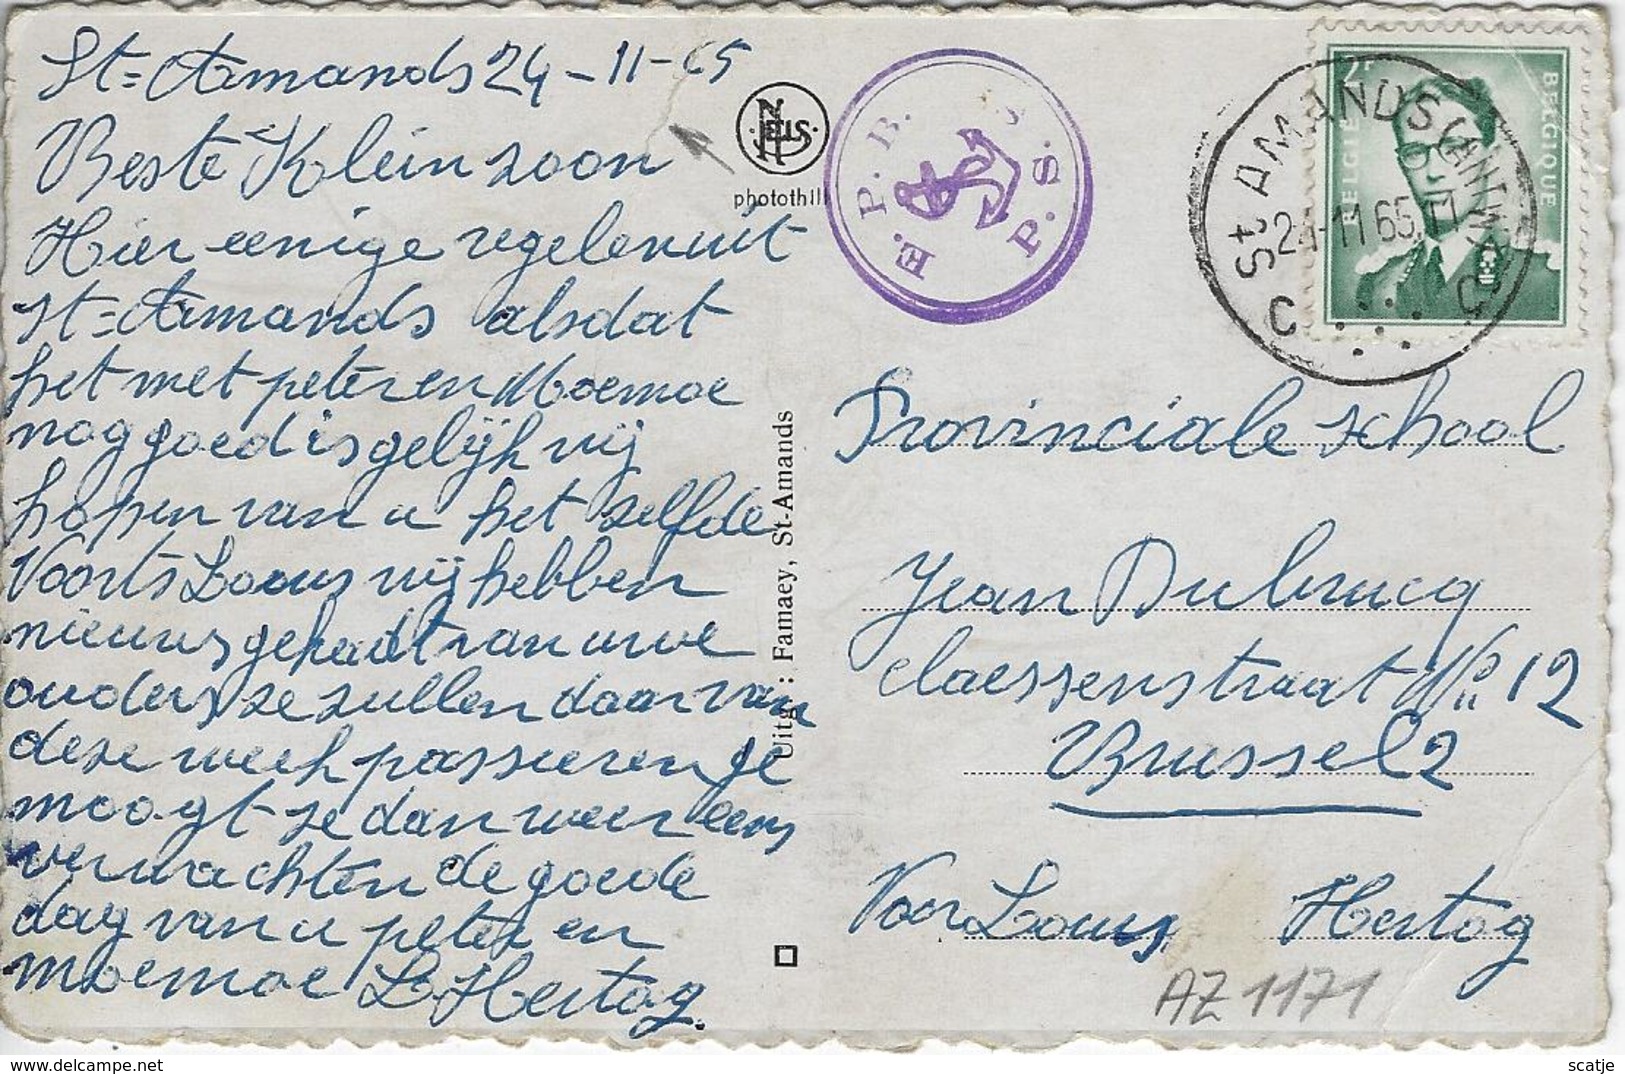 St=Armands 24-11-65
Beste Kleinzoon
Hier eenige regelen uit
St=Armands alsdat
het met peter en Moemoe
nog goed is gelijk wij
hopen van u het zelfde
Voorts Louis wij hebben
nieuws gehadt van uwe
ouders ze zullen daar van
deze week passieren je
moogt ze dan weer eens
verwachten de goede
dag van u peter en
moemoe L Hertog.
NELS
photothill
Uitg.: Famaey, St-Amands
E. P. B. P. S.
BELGIE BELGIQUE
2F
St AMANDS
-11 65
C C
Provinciale school
Jean Dubrucq
claessenstraat No 12
Brussel 2
Voor Louis Hertog
AZ 1171
https://www.delcampe.net
scatje